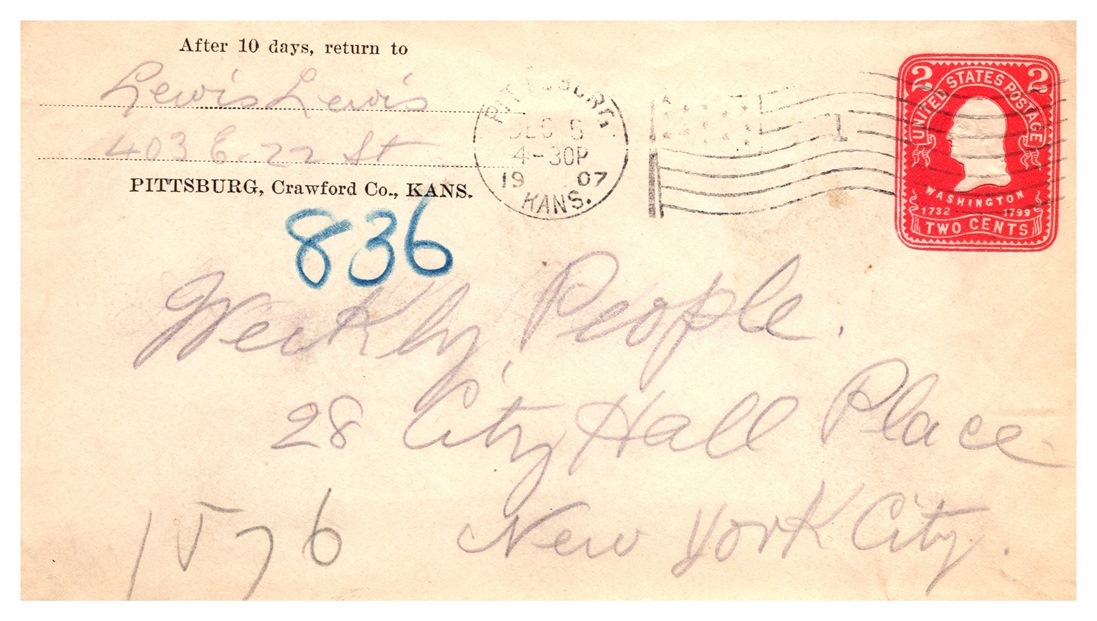 After 10 days, return to
Lewis Lewis
403 E-22 St
PITTSBURG, Crawford Co., KANS.
PITTSBURG
DEC 5
4-30P
1907
KANS.
1
2 2
UNITED STATES POSTAGE
WASHINGTON
1732 1799
TWO CENTS
836
Weekly People.
28 City Hall Place
New York City.
1576